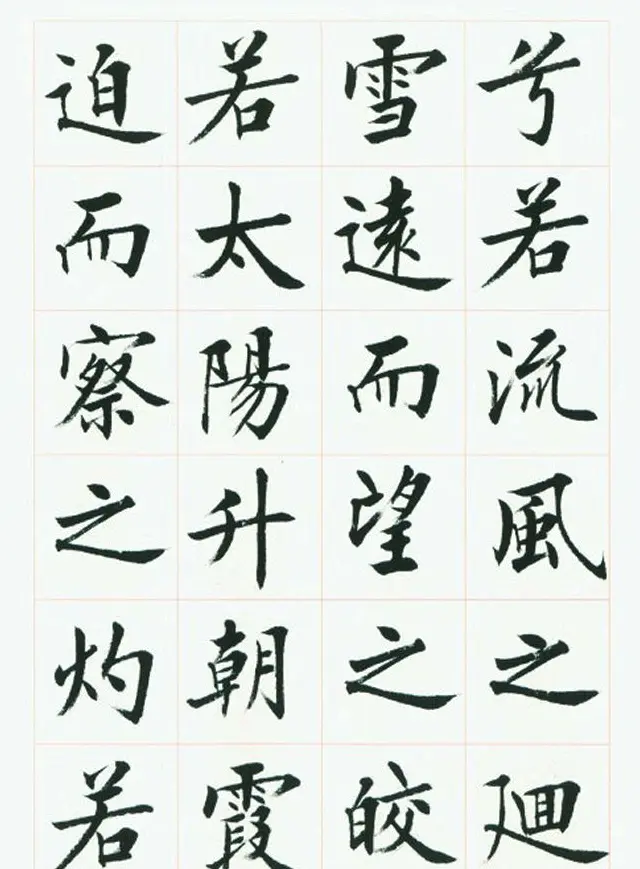 兮若流風之廻
雪遠而望之皎
若太陽升朝霞
迫而察之灼若